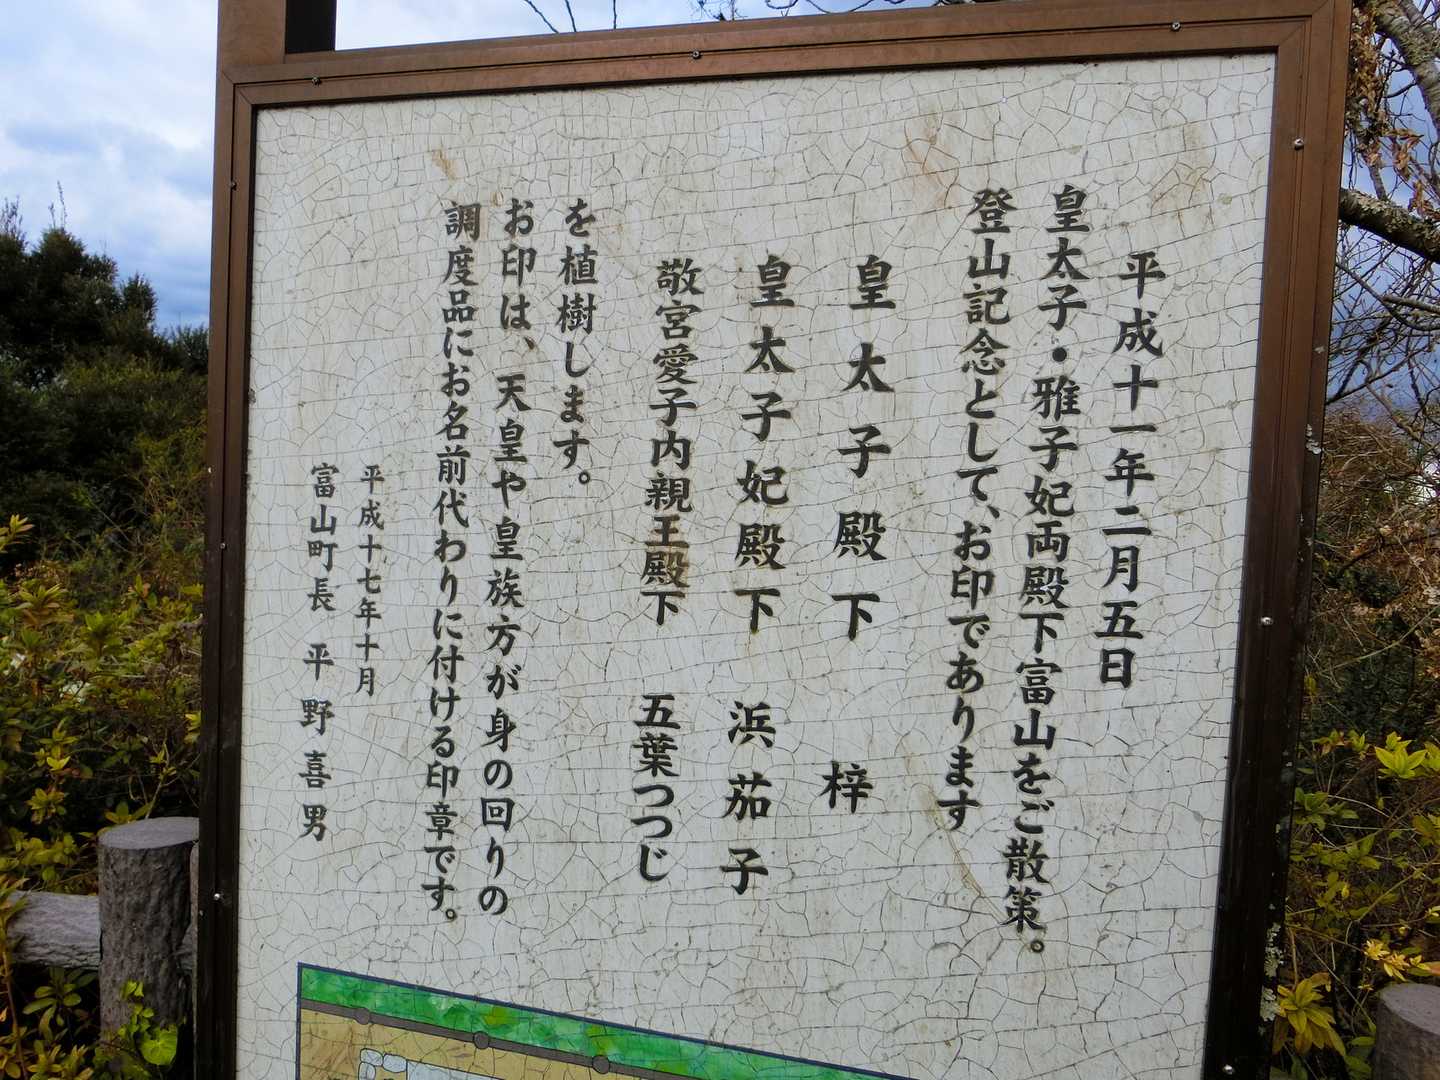 平成十一年二月五日
皇太子・雅子妃両殿下富山をご散策。
登山記念として、お印であります
皇太子殿下 梓
皇太子妃殿下 浜茄子
敬宮愛子内親王殿下 五葉つつじ
を植樹します。
お印は、天皇や皇族方が身の回りの
調度品にお名前代わりに付ける印章です。
平成十七年十月
富山町長 平野喜男